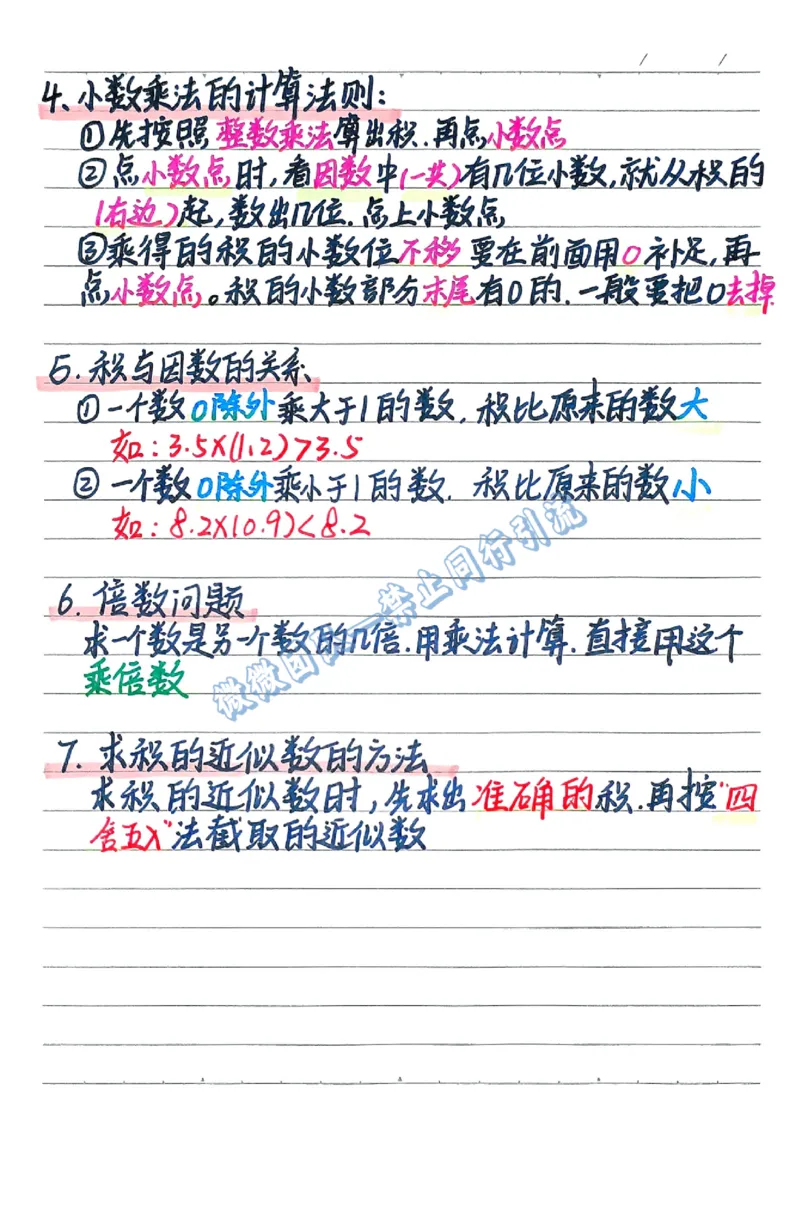 4、小数乘法的计算法则：
①先按照整数乘法算出积.再点小数点
②点小数点时,看因数中(一共)有几位小数,就从积的
(右边)起,数出几位.点上小数点
③乘得的积的小数位不够要在前面用0补足,再
点小数点。积的小数部分末尾有0的.一般要把0去掉
5.积与因数的关系
①一个数0除外乘大于1的数.积比原来的数大
如:3.5×(1.2)>3.5
②一个数0除外乘小于1的数.积比原来的数小
如:8.2×(0.9)<8.2
6.倍数问题
求一个数是另一个数的几倍.用乘法计算.直接用这个
乘倍数
7.求积的近似数的方法
求积的近似数时,先求出准确的积.再按"四
舍五入"法截取的近似数
微微团队一禁止同行引流